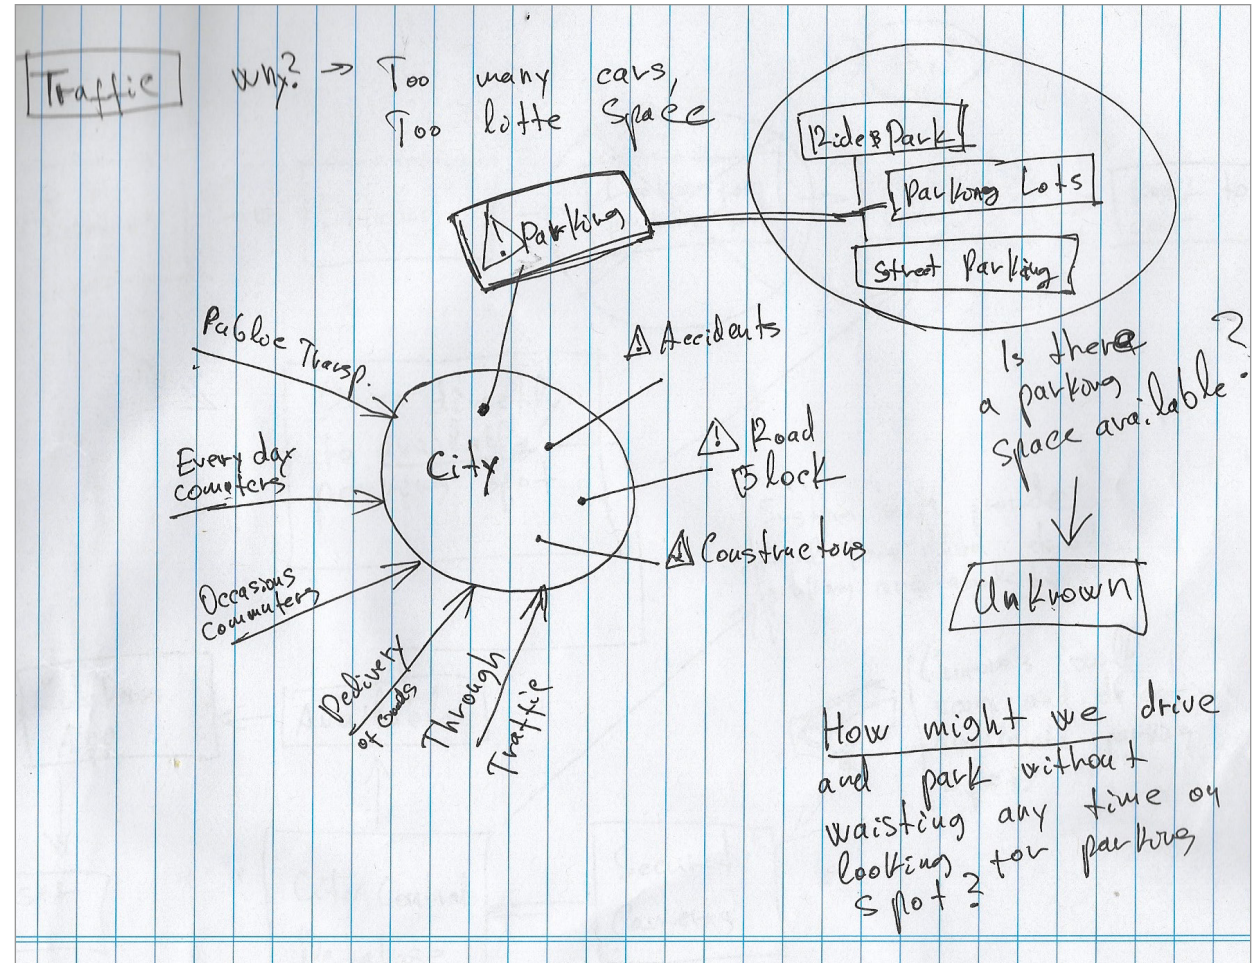 Traffic why? → Too many cars,
Too lotte space
⚠ Parking
Ride & Park
Parking Lots
Street Parking
Is there
a parking
space available?
Unknown
Public Transp.
Every day
comuters
Occasions
Commuters
Delivery
of Goods
Through
Traffic
City
⚠ Accidents
⚠ Road
Block
⚠ Constructons
How might we drive
and park without
waisting any time on
looking for parking
spot?